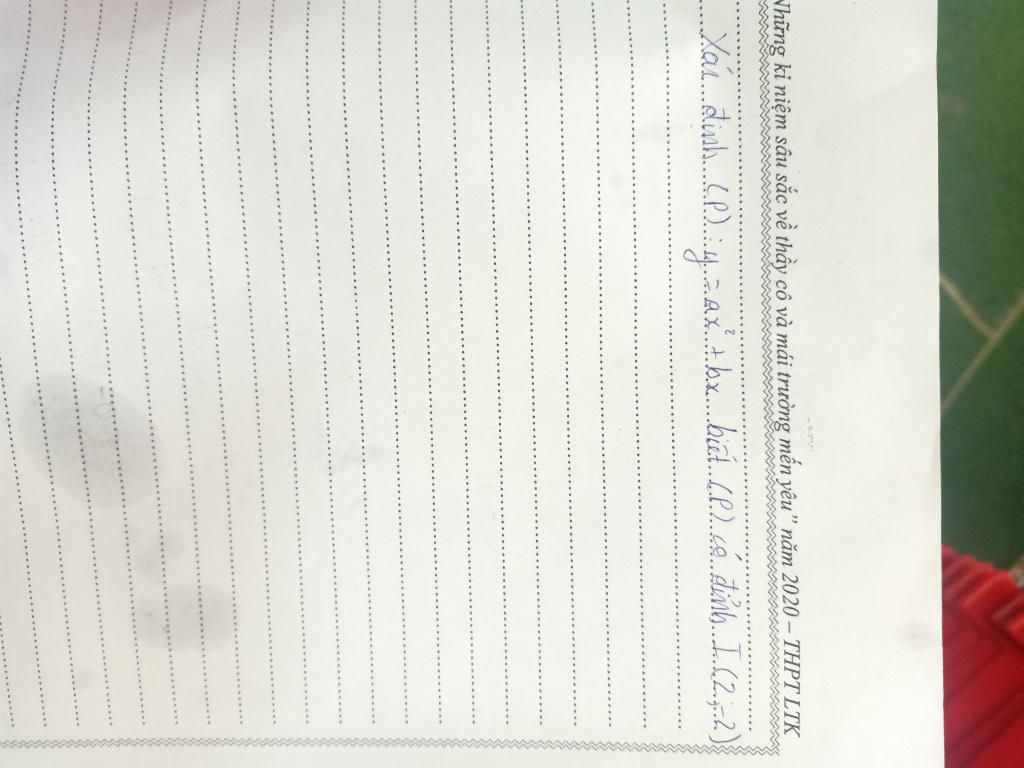 Những kỉ niệm sâu sắc về thầy cô và mái trường mến yêu" năm 2020 – THPT LTK
Xác định (P) : y = ax² + bx biết (P) có đỉnh I (2 ; -2)